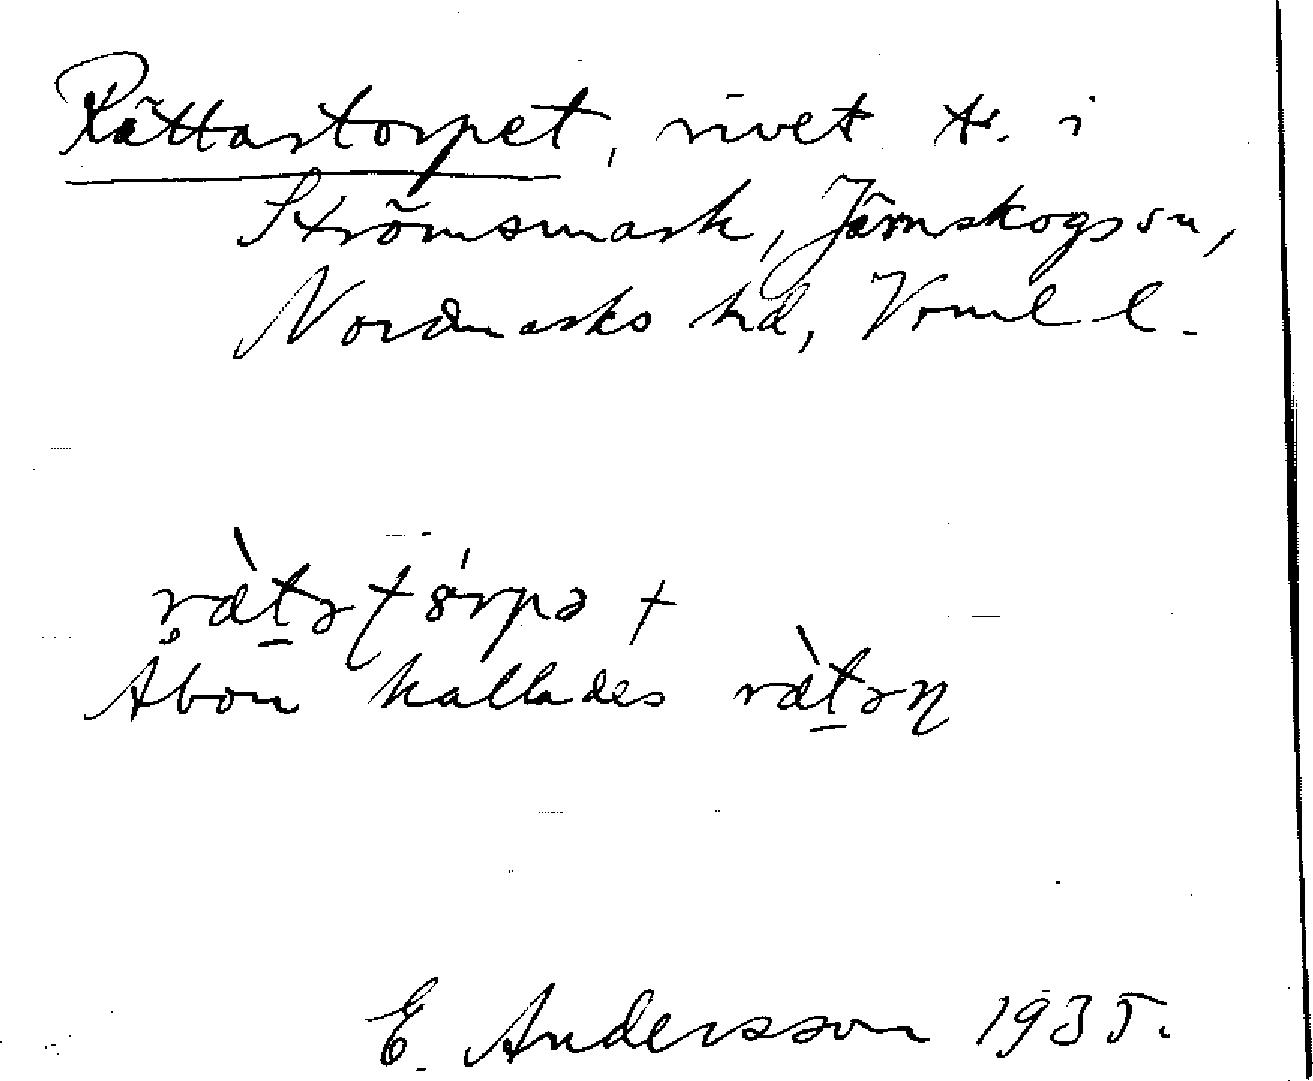 Rättastorpet, rivet tr. i
Strömsmark, Järnskogs sn,
Nordmarks hd, Vrml l.
ràt̠əʈs̍rpə +
Åbon kallades ràt̠əɳ
E. Andersson 1935.